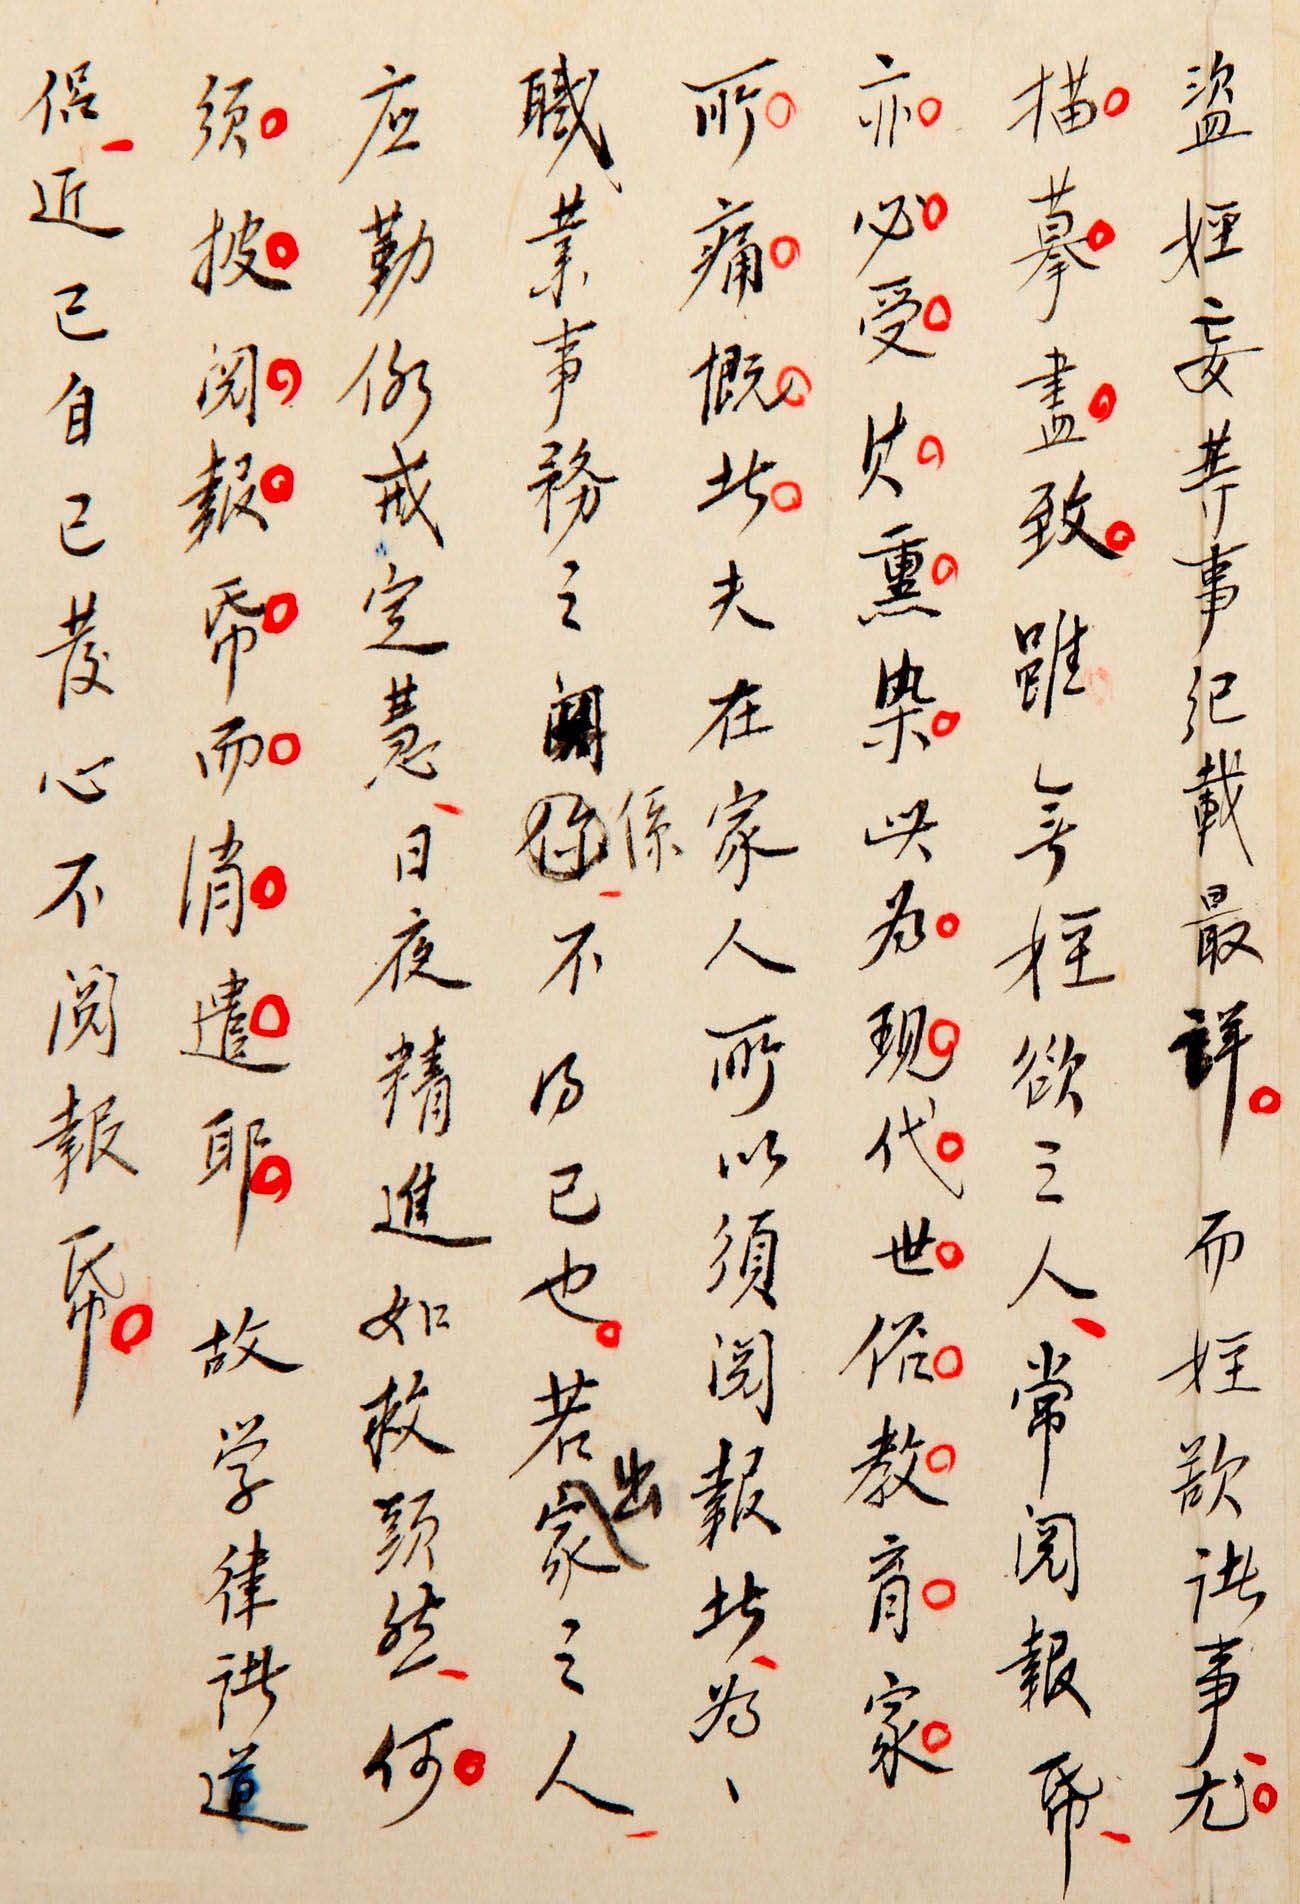 盜婬妄等事紀載最詳而婬欲諸事尤
描摹盡致雖無婬欲之人常閱報帋
亦必受其熏染此為現代世俗教育家
所痛慨者夫在家人所以須閱報者為、
職業事務之關係不得已也若出家之人
应勤修戒定慧日夜精進如救頭然何
須披閱報帋而消遣耶故学律諸道
侣近已自己發心不閱報帋